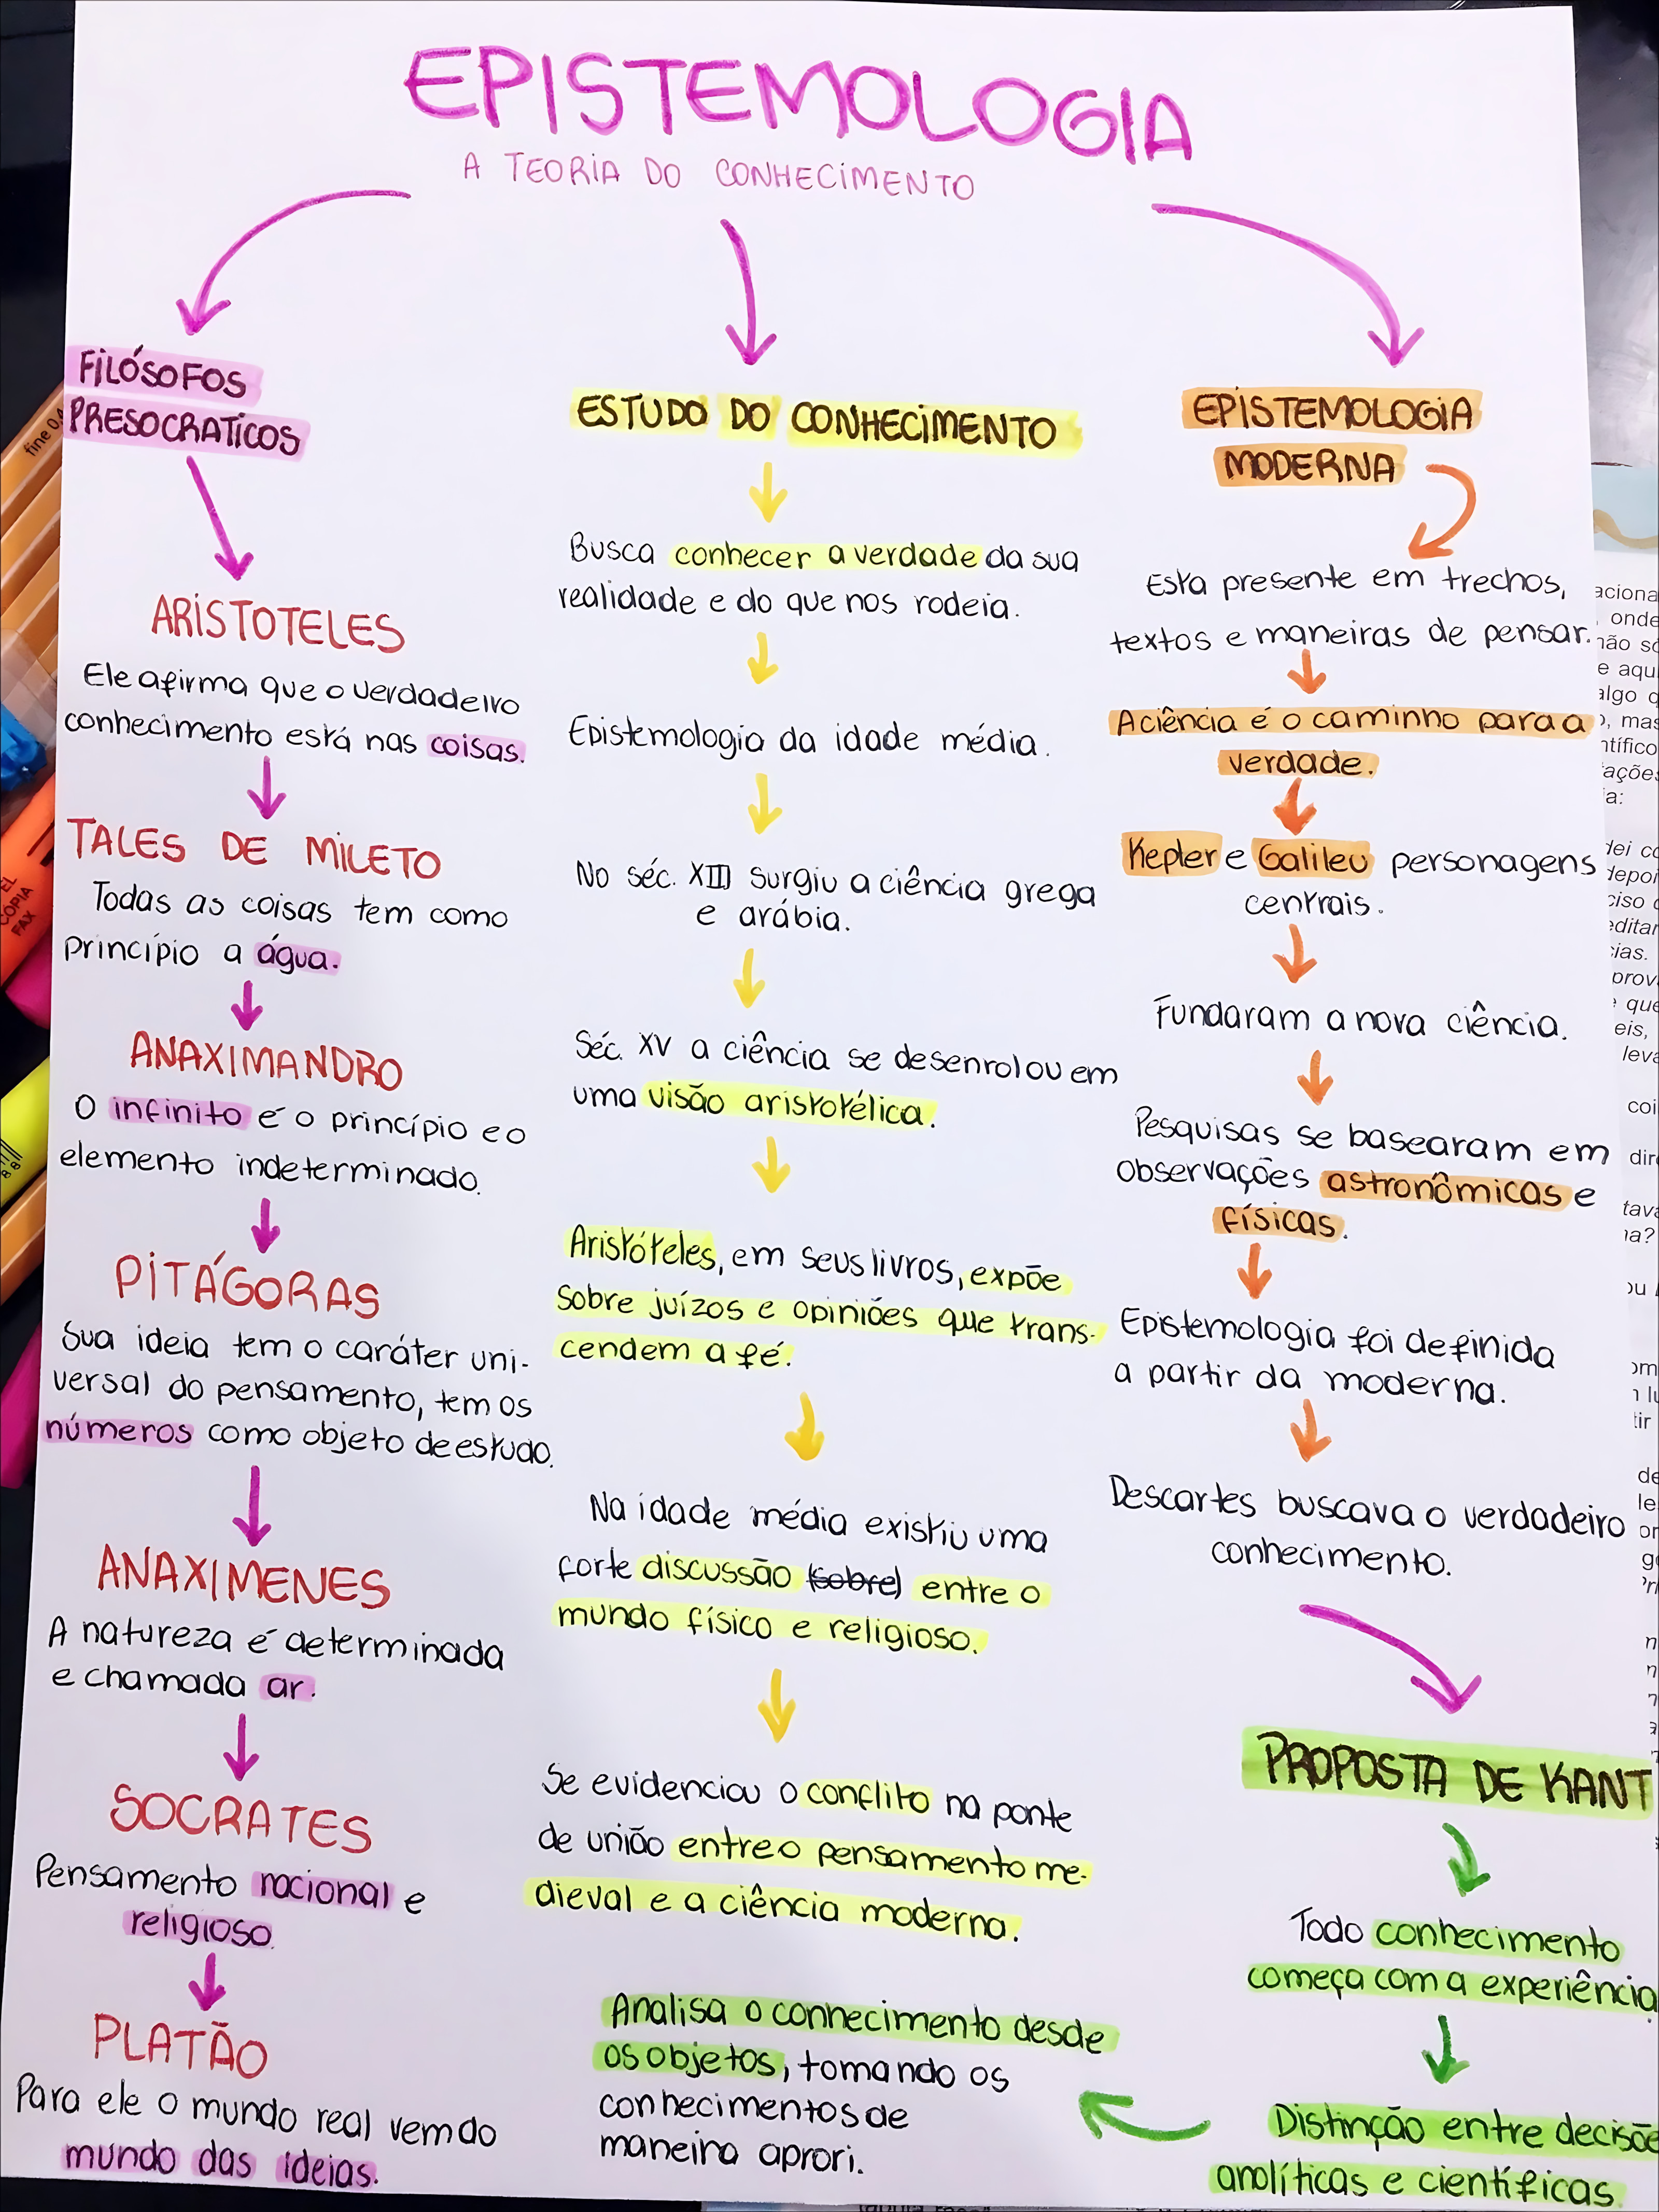 EPISTEMOLOGIA
A TEORIA DO CONHECIMENTO
FILÓSOFOS
PRESOCRATICOS
ARISTOTELES
Ele afirma que o verdadeiro
conhecimento está nas coisas.
TALES DE MILETO
Todas as coisas tem como
princípio a água.
ANAXIMANDRO
O infinito é o princípio e o
elemento indeterminado.
PITÁGORAS
Sua ideia tem o caráter uni-
versal do pensamento, tem os
números como objeto de estudo.
ANAXIMENES
A natureza é determinada
e chamada ar.
SOCRATES
Pensamento racional e
religioso.
PLATÃO
Para ele o mundo real vem do
mundo das ideias.
ESTUDO DO CONHECIMENTO
Busca conhecer a verdade da sua
realidade e do que nos rodeia.
Epistemologia da idade média.
No séc. XIII surgiu a ciência grega
e arábia.
Séc. XV a ciência se desenrolou em
uma visão aristotélica.
Aristóteles, em seus livros, expõe
sobre juízos e opiniões que trans-
cendem a fé.
Na idade média existiu uma
forte discussão (sobre) entre o
mundo físico e religioso.
Se evidenciou o conflito na ponte
de união entre o pensamento me-
dieval e a ciência moderna.
EPISTEMOLOGIA
MODERNA
Esta presente em trechos,
textos e maneiras de pensar.
A ciência é o caminho para a
verdade.
Kepler e Galileu personagens
centrais.
Fundaram a nova ciência.
Pesquisas se basearam em
observações astronômicas e
físicas.
Epistemologia foi definida
a partir da moderna.
Descartes buscava o verdadeiro
conhecimento.
PROPOSTA DE KANT
Todo conhecimento
começa com a experiência
Distinção entre decisõe
analíticas e científicas.
Analisa o conhecimento desde
os objetos, tomando os
conhecimentos de
maneira aprori.
fine 0.4
CÓPIA
FAX
onde
não só
e aqui
algo q
, mas
ia: